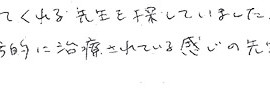 てくれる先生を探していました。
的に治療されている感じの先生